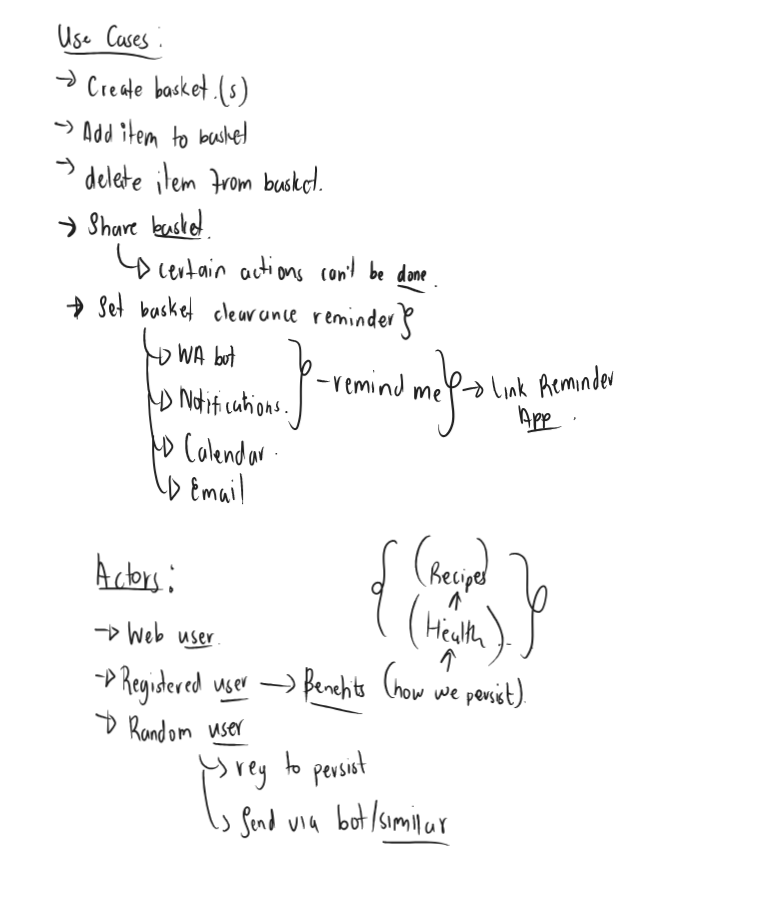 Use Cases:
→ Create basket.(s)
→ Add item to basket
→ delete item from basket.
→ Share basket.
↳ certain actions can't be done.
→ Set basket clearance reminder}
↳ WA bot
↳ Notifications. } - remind me } → Link Reminder App.
↳ Calendar.
↳ Email
Actors:
{ (Recipes)
↑
(Health). }
↑
→ Web user.
→ Registered user → Benefits (how we persist).
→ Random user
↳ reg to persist
↳ Send via bot/similar